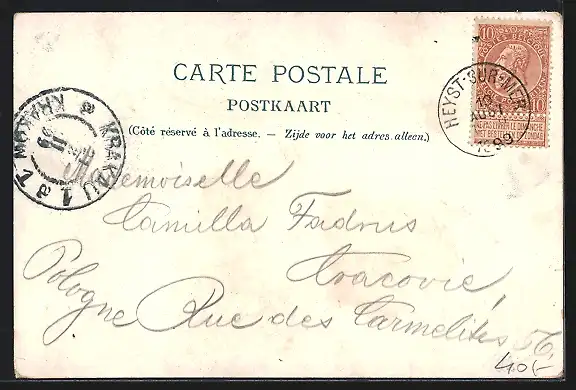 CARTE POSTALE
POSTKAART
(Côté réservé à l'adresse. — Zijde voor het adres alleen.)
10 10
NE PAS LIVRER LE DIMANCHE
NIET BESTELLEN OP ZONDAG
HEYST-SUR-MER
10
AOUT
1899
KRAKAU 1
KRAKÓW 1
Mademoiselle
Camilla Fadrus
Cracovie,
Pologne Rue des Carmelites
40.-